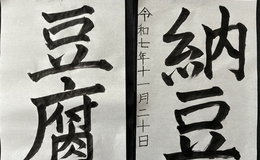 納豆
令和七年十一月二十日
豆腐